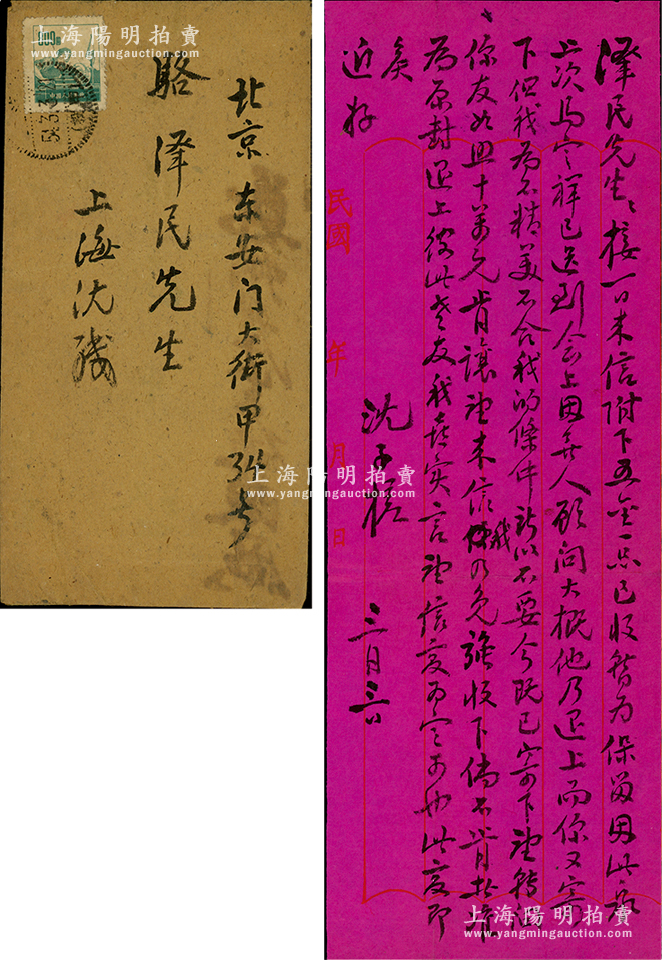 上海陽明拍賣
www.yangmingauction.com
800
北京东安门大街甲
骆泽民先生
上海沈
上海陽明拍賣
www.yangmingauction.com
泽民先生：接一日来信附下五金一只已收暂为保留因此
上次马定祥已送到会上因无人顾问大概他乃退上而你又寄
下但我为不精美不合我的条件所以不要今既已寄下望转
你友如四十万元肯让望来信我乃免强收下倘不肯
为原封退上彼此老友我喜实言望信复为定可也此复即
近好
沈子槎
三月三日
民国 年 月 日
上海陽明拍賣
www.yangmingauction.com